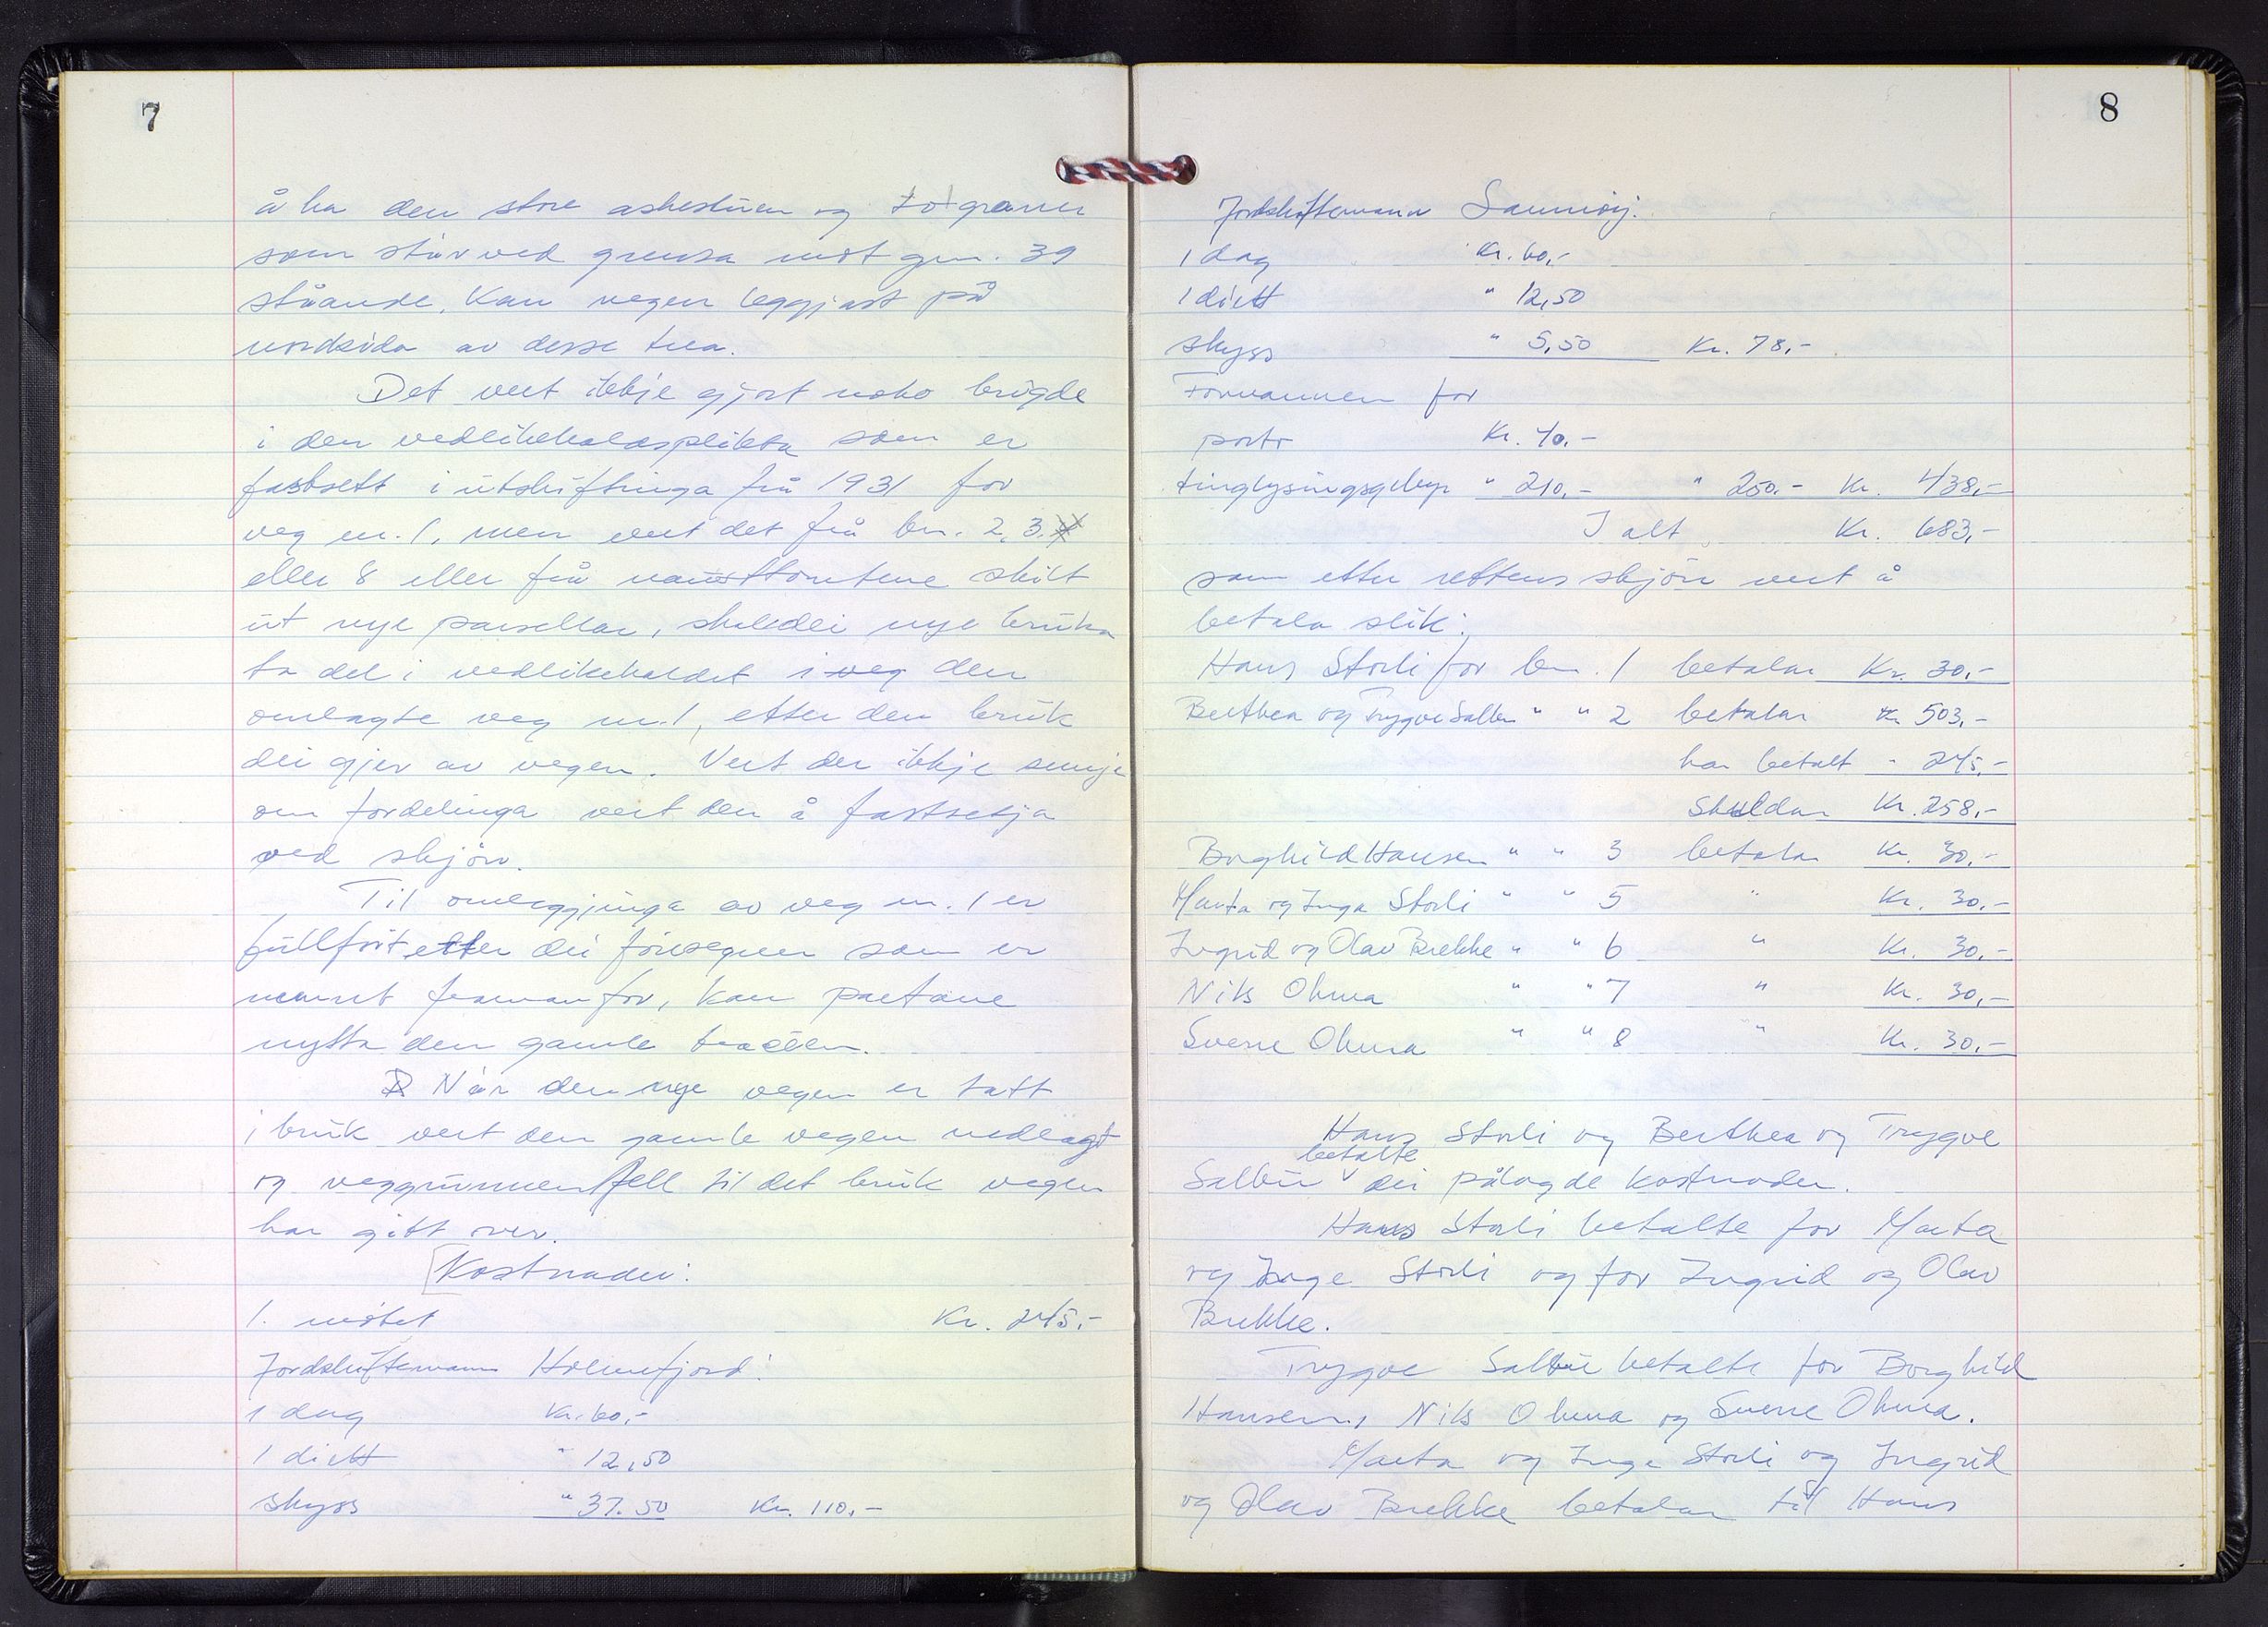 7
å ha den store askestuven og to graner
som står ved grensa mot gnr. 39
ståande. Kan vegen leggjast på
nordsida av desse trea.
Det vert ikkje gjort noko brigde
i den vedlikehaldsplikta som er
fastsett i utskiftinga frå 1931 for
veg nr. 1, men vert det frå bnr. 2, 3
eller 8 eller frå nausttomtene skilt
ut nye parsellar, skal dei nye bruka
ta del i vedlikehaldet i veg den
omlagte veg nr. 1, etter den bruk
dei gjer av vegen. Vert der ikkje semje
om fordelinga vert den å fastsetja
ved skjön.
Til omleggjinga av veg nr. 1 er
fullfört etter dei föresegner som er
nemnt framanfor, kan partane
nytta den gamle traceen.
Når den nye vegen er tatt
i bruk vert den gamle vegen nedlagt
og veggrunnen fell til det bruk vegen
har gått over.
Kostnader:
1. mötet Kr. 245.-
Jordskiftemann Holmefjord:
1 dag Kr. 60,-
1 diett " 12,50
skyss " 37.50 Kr. 110,-
8
Jordskiftemann Samnöy:
1 dag Kr. 60,-
1 diett " 12,50
skyss " 5,50 Kr. 78,-
Formannen for
porto Kr. 40,-
tinglysingsgebyr " 210,- " 250.- Kr. 438,-
I alt Kr. 683,-
som etter rettens skjön vert å
betala slik:
Hans Storli for bnr. 1 betalar Kr. 30,-
Berthea og Trygve Salbu " " 2 betalar Kr. 503,-
har betalt - 245,-
skuldar Kr. 258,-
Borghild Hansen " " 3 betalar Kr. 30,-
Marta og Inga Storli " " 5 " Kr. 30,-
Ingrid og Olav Brekke " " 6 " Kr. 30,-
Nils Ohma " " 7 " Kr. 30,-
Sverre Ohma " " 8 " Kr. 30,-
Hans Storli og Berthea og Trygve
Salbu betalte dei pålagde kostnader.
Hans Storli betalte for Marta
og Inge Storli og for Ingrid og Olav
Brekke.
Trygve Salbu betalte for Borghild
Hansen, Nils Ohma og Sverre Ohma.
Marta og Inge Storli og Ingrid
og Olav Brekke betalar til Hans